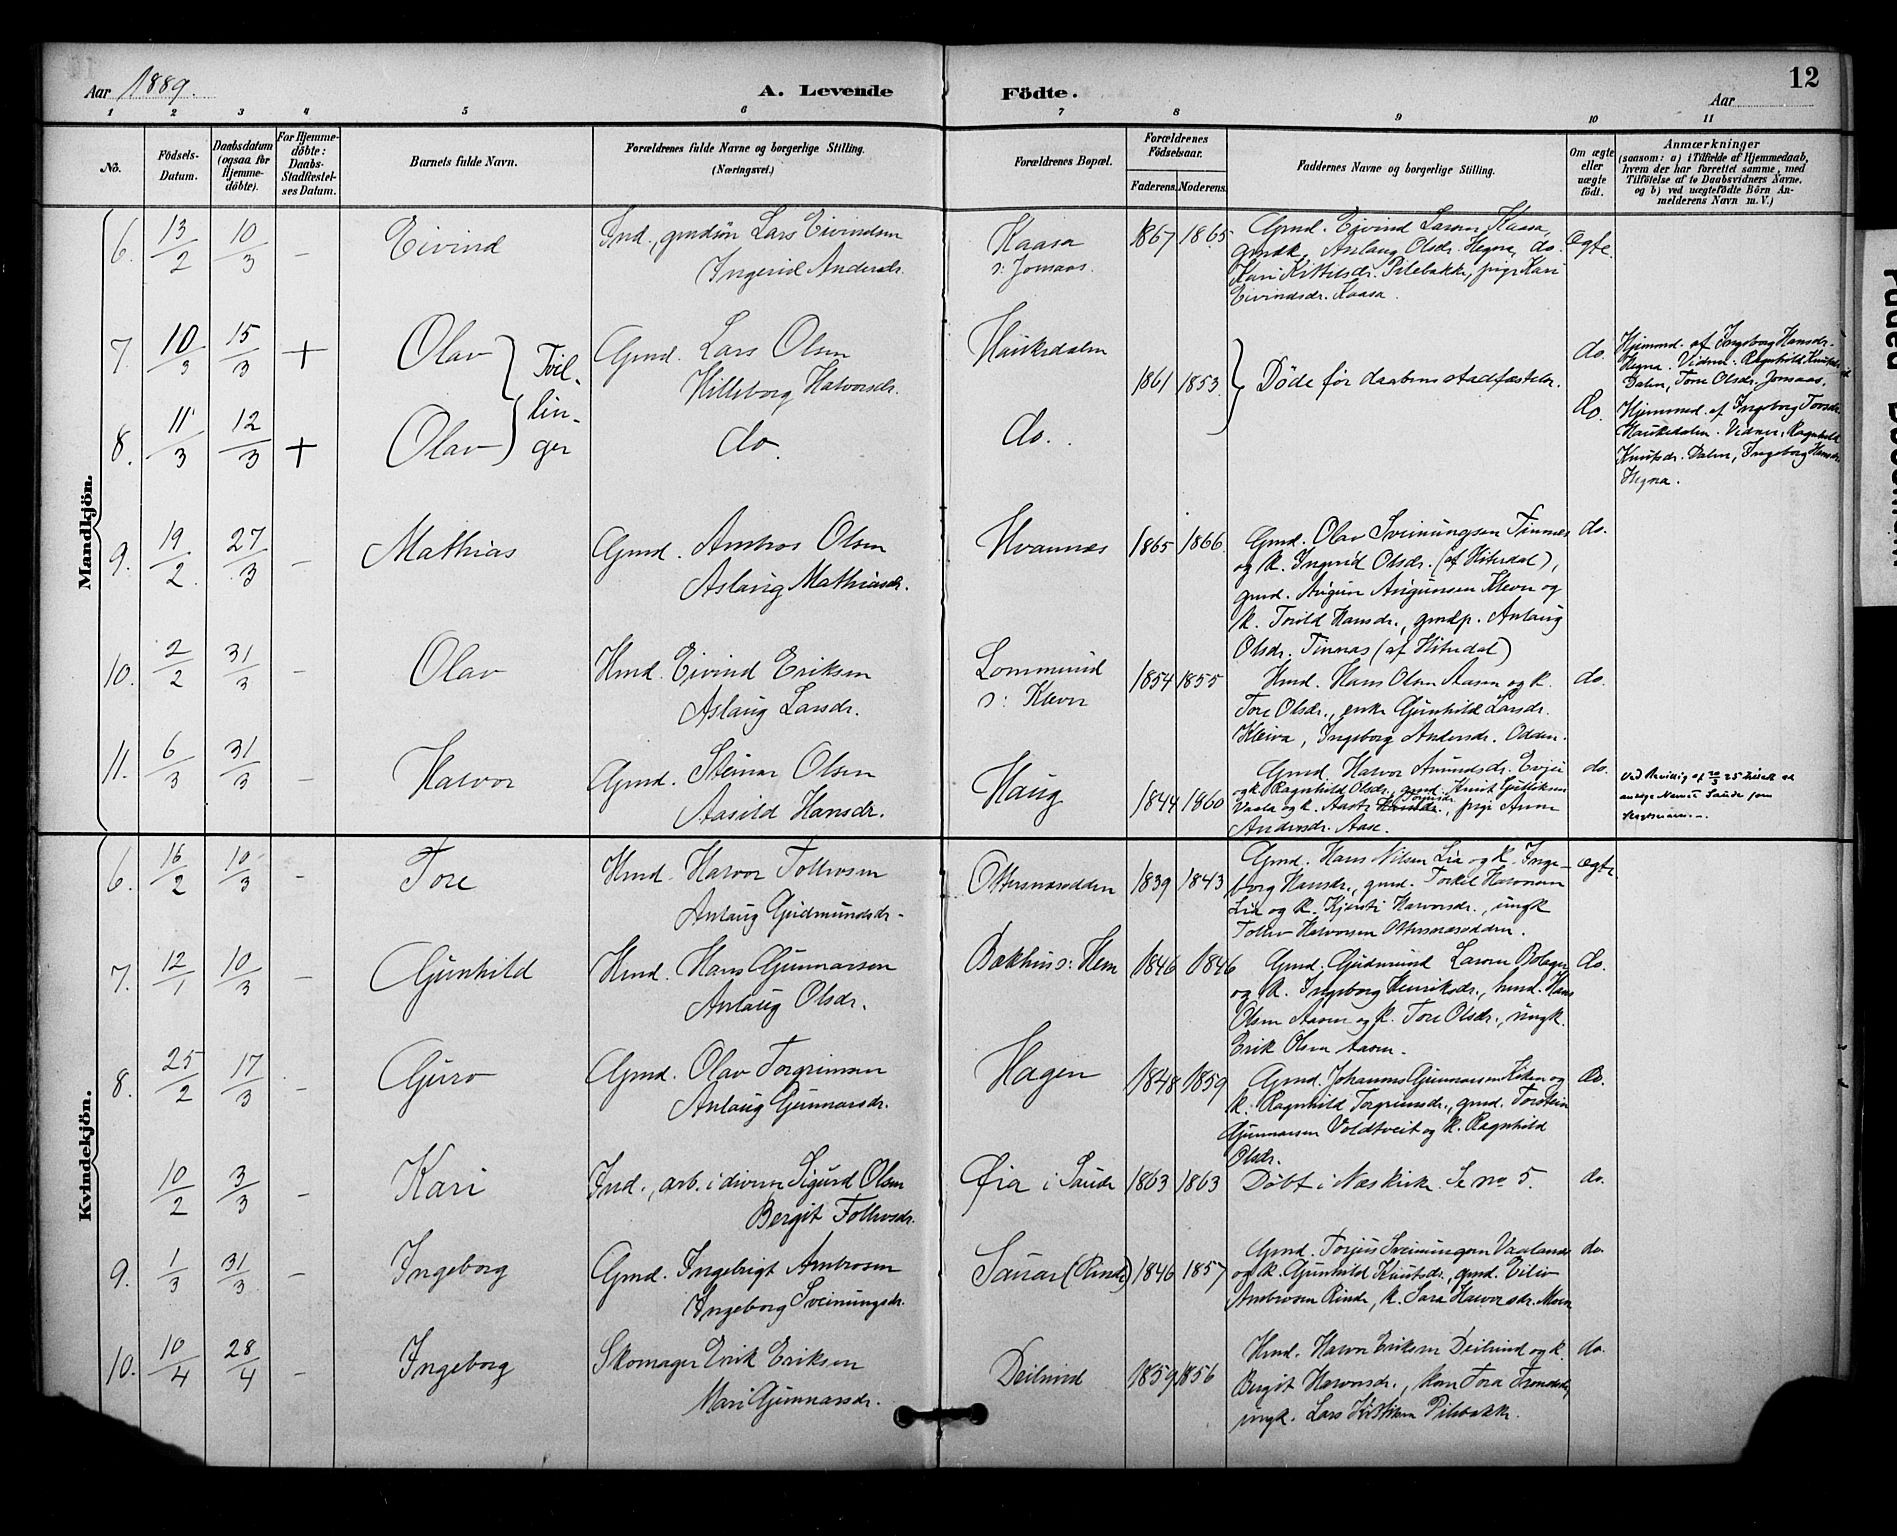 Aar 1889.
A. Levende Födte.
Aar
12
1 2 3 4 5 6 7 8 9 10 11
No.
Födsels-Datum.
Daabsdatum (ogsaa for Hjemme-döbte).
For Hjemme-döbte: Daabs-Stadfæstel-ses Datum.
Barnets fulde Navn.
Forældrenes fulde Navne og borgerlige Stilling.
(Næringsvei.)
Forældrenes Bopæl.
Forældrenes Födselsaar.
Faderens. Moderens.
Faddernes Navne og borgerlige Stilling.
Om ægte eller uægte födt.
Anmærkninger
(saasom: a) i Tilfælde af Hjemmedaab,
hvem der har forrettet samme, med
Tilföielse af to Daabsvidners Navne,
og b) ved uægtefödte Börn An-
melderens Navn m. V.)
Mandkjön.
6. 13/2 10/3 – Eivind
Ind., gmdsön Lars Eivindsen
Ingerid Andersdr.
Kaasa
s: Jonsaas.
1867 1865
Gmd. Eivind Larsen Kaasa,
gmdk. Anlaug Olsdr. Hegna, do.
Kari Kittilsdr. Pilebakke, pige Kari
Eivindsdr. Kaasa.
Ægte.
7. 10/3 15/3 + Olav
Tvil-
lin-
ger
Gmd. Lars Olsen
Hilleborg Halvorsdr.
Haukedalen
1861 1853
Döde för daabens stadfæstelse.
do.
Hjemmed. af Ingeborg Hansdr.
Hegna. Vidner: Ragnhild Knutsdr.
Dalen, Tore Olsdr. Jonsaas.
8. 11/3 12/3 + Olav
do.
do.
do.
Hjemmed. af Ingeborg Torsdr.
Haukedalen. Vidner, Ragnhild
Knutsdr. Dalen, Ingeborg Hansdr.
Hegna.
9. 19/2 27/3 – Mathias
Gmd. Ambros Olsen
Aslaug Mathiasdr.
Hvannes
1865 1866
Gmd. Olav Sveinungsen Tinnes
og k. Ingerid Olsdr. (af Hiterdal),
gmd. Augun Augunsen Kleven og
k. Torild Hansdr., gmdp. Anlaug
Olsdr. Tinnes (af Hiterdal)
do.
10. 2/2 31/3 – Olav
Hmd. Eivind Eriksen
Aslaug Larsdr.
Lommund
s: Kleven
1854 1855
Hmd. Hans Olsen Aasen og k.
Tore Olsdr., enke Gunhild Larsdr.
Kleiva, Ingeborg Andersdr. Odden.
do.
11. 6/3 31/3 – Halvor
Gmd. Steinar Olsen
Aasild Hansdr.
Haug
1844 1860
Gmd. Halvor Amundsdr. Evju
og k. Ragnhild Olsdr., gmd. Knut Gulliksen
Vaala og k. Aaste, pige Anne
Andersdr. Aase
do.
Ved Bevillig af 20/3 25
Navnet Saude som
Kvindekjön.
6. 16/2 10/3 – Tore
Hmd. Halvor Tollevsen
Anlaug Gudmundsdr.
Ottersnesodden
1839 1843
Gmd. Hans Nilsen Lia og k. Inge-
borg Hansdr., gmd. Torkel Halvorsen
Lia og k. Kjersti Halvorsdr., ungk
Tollev Halvorsen Ottersnesodden.
ægte
7. 12/1 10/3 – Gunhild
Hmd. Hans Gunnarsen
Anlaug Olsdr.
Bækhus s: Hem
1846 1846
Gmd. Gudmund Larsen Bolager
og k. Ingeborg Henriksdr., hmd. Hans
Olsen Aasen og k. Tore Olsdr., ungk.
Erik Olsen Aasen.
do.
8. 25/2 17/3 – Guro
Gmd. Olav Torgrimsen
Anlaug Gunnarsdr.
Hagen
1848 1859
Gmd. Johannes Gunnarsen Kaasen og
k. Ragnhild Torgrimsdr., gmd. Torstein
Gunnarsen Voldtveit og k. Ragnhild
Olsdr.
do.
10/2 3/3 – Kari
Ind., arb. i diverse Sigurd Olsen
Bergit Tollevsdr.
Øra i Saude
1863 1863
Döbt i Næskirke. Se no 5.
do.
9. 1/3 31/3 – Ingeborg
Gmd. Ingebrigt Ambrosen
Ingeborg Sveinungsdr.
Sauar (Rinde)
1846 1857
Gmd. Torjus Sveinungsen Vaaland
og k. Gunhild Knutsdr., gmd. Eiliv
Ambrosen Rinde, k. Sara Halvorsdr. Moen
do.
10. 10/4 28/4 – Ingeborg
Skomager Erik Eriksen
Mari Gunnarsdr.
Deilrind
1859 1856
Hmd. Halvor Eriksen Deilrind og k.
Bergit Halvorsdr., kone Tora
ungk. Lars Kittilsen Pilebakke.
do.